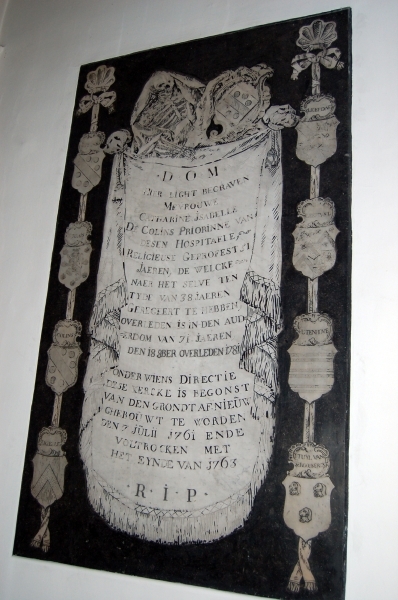 D O M
HIER LIGHT BEGRAVEN
MEVROUWE
CATHARINE ISABELLE
DE COLINS PRIORINNE VAN
DESEN HOSPITAELE,
RELIGIEUSE GEPROFEST 51
JAEREN, DE WELCKE
NAER HET SELVE TEN
TYDE VAN 38 JAEREN
GEREGEERT TE HEBBEN
OVERLEDEN IS IN DEN AUD
ERDOM VAN 71 JAEREN
DEN 18 8BER OVERLEDEN 178
ONDER WIENS DIRECTIE
DESE KERCKE IS BEGONST
VAN DEN GRONDT AF NIEUW
GHEBOUWT TE WORDEN
DEN 7 JULII 1761 ENDE
VOLTROCKEN MET
HET EYNDE VAN 1763
R I P